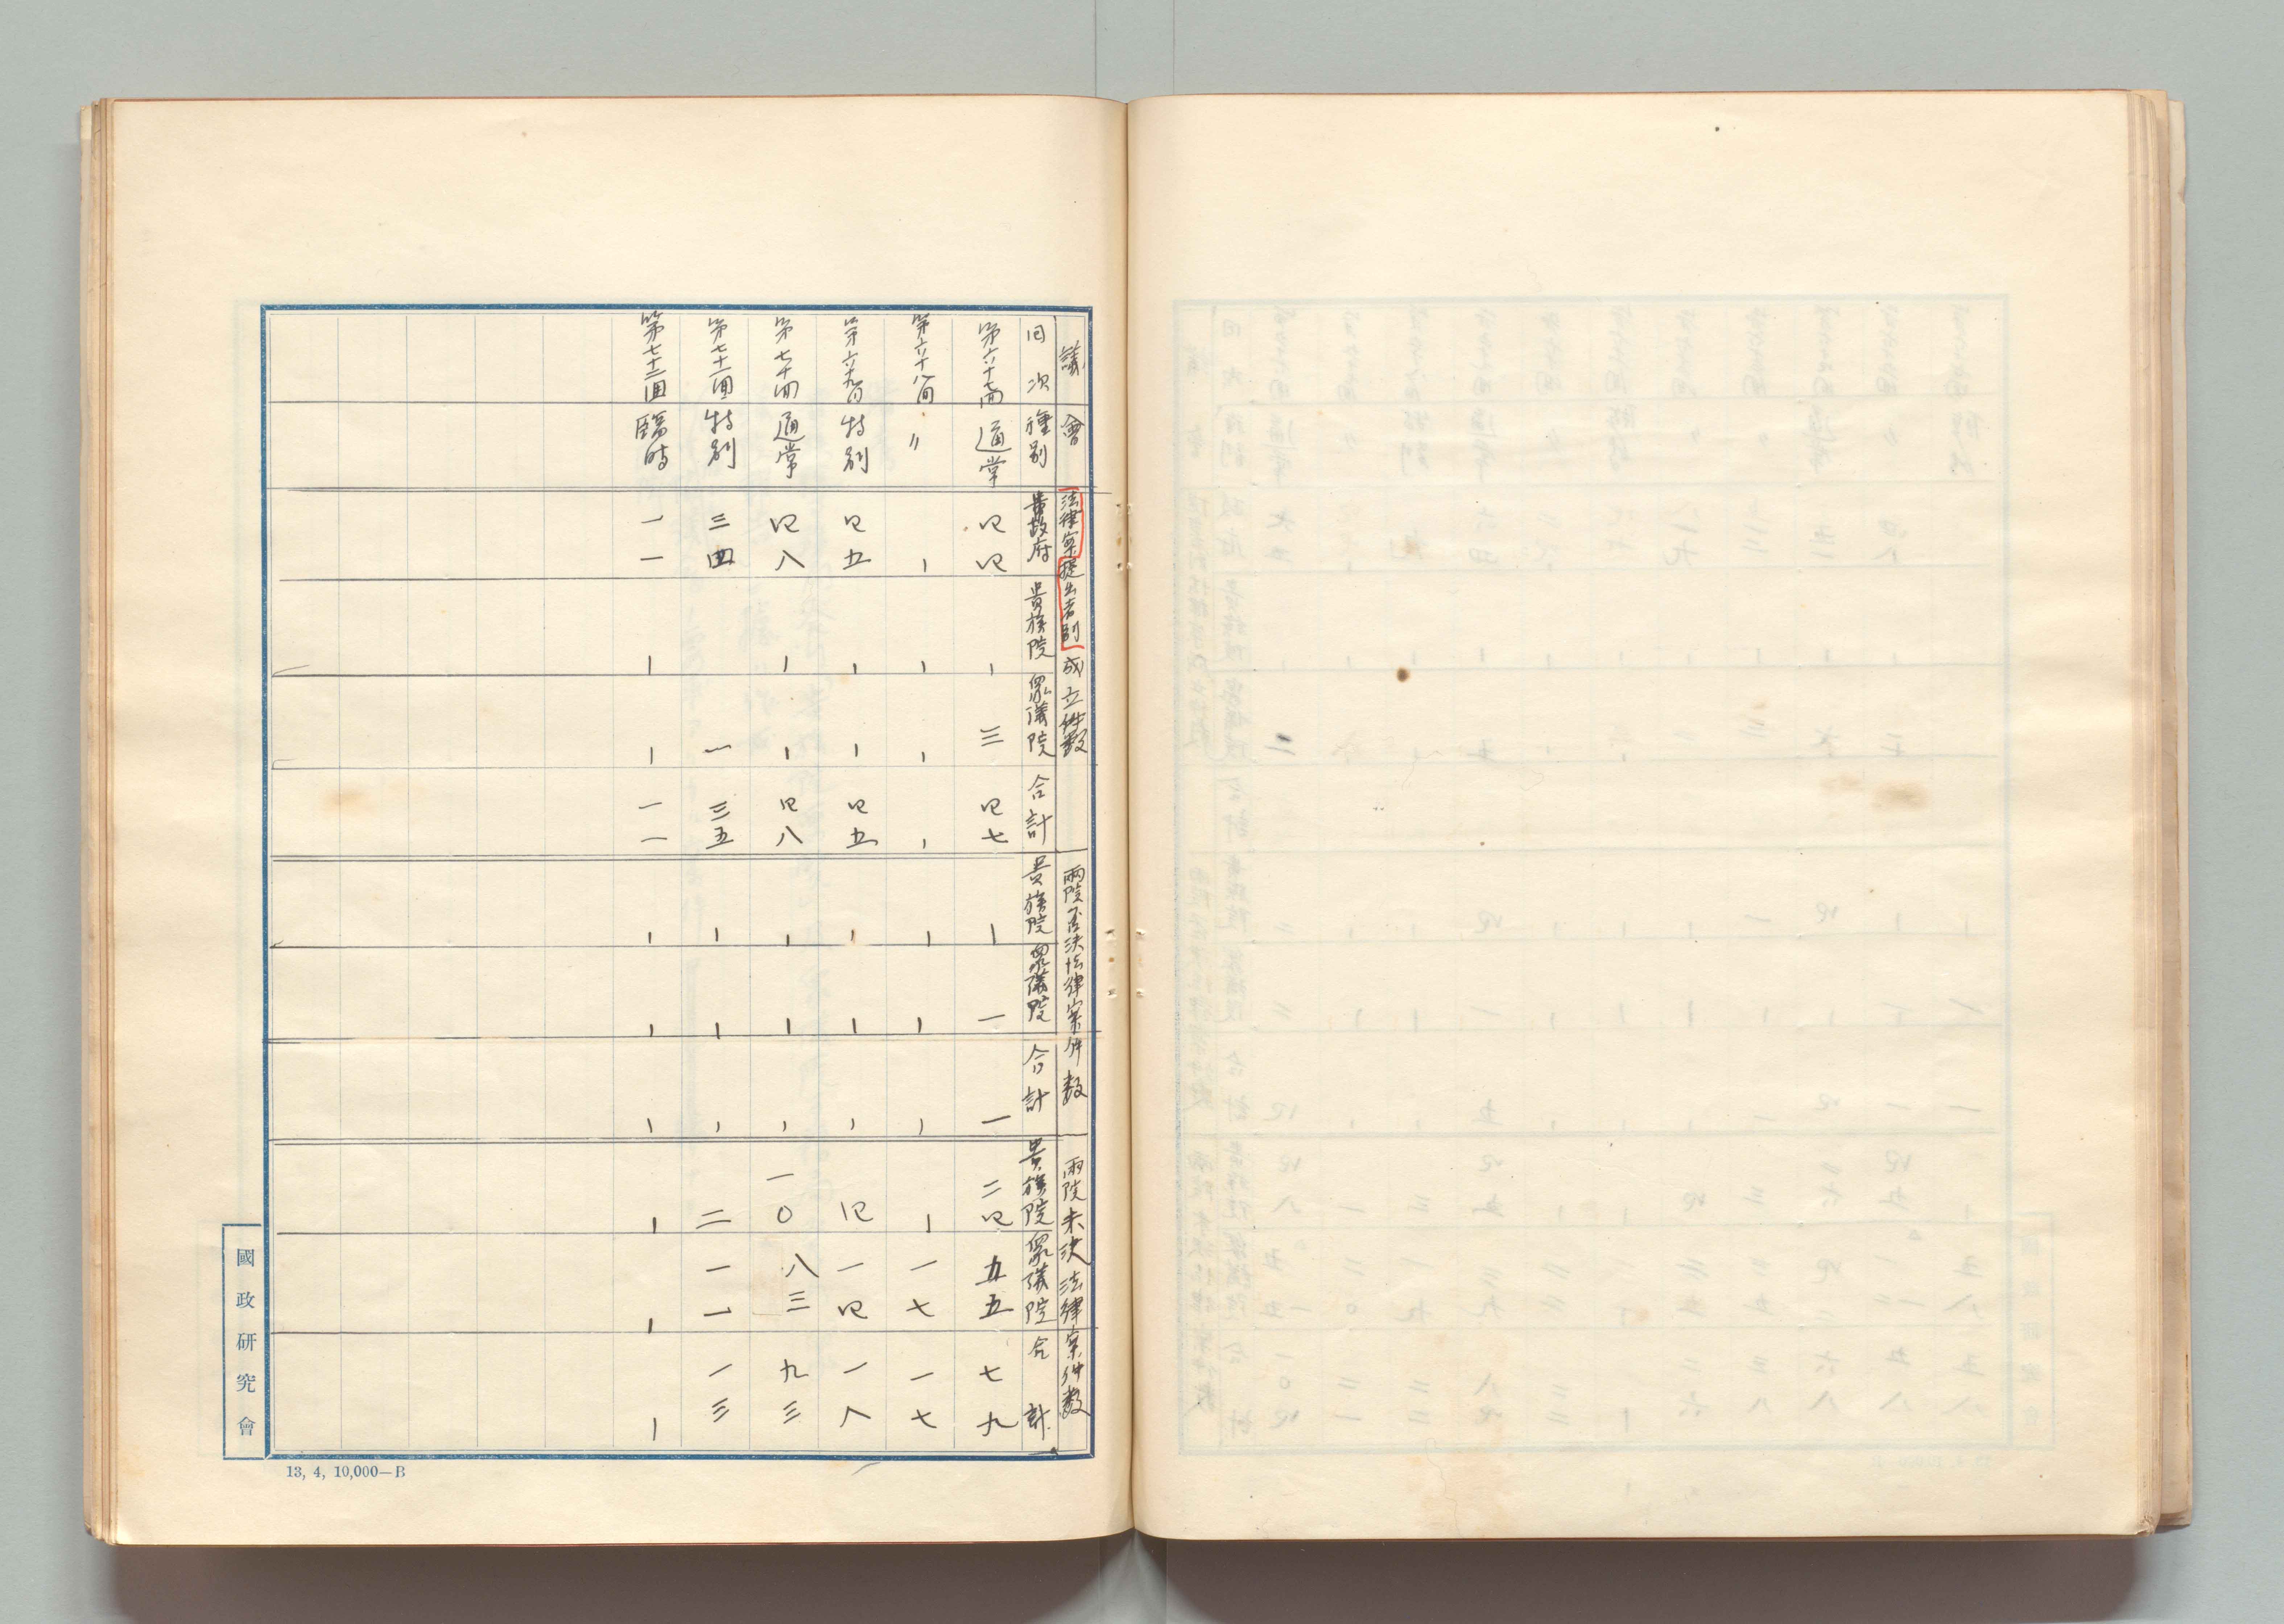 議會 法律案提出者別成立件数 兩院否決法律案件数 兩院未決法律案件数
回次 種別 政府 貴族院 衆議院 合計 貴族院 衆議院 合計 貴族院 衆議院 合計
第六十七回 通常 四四 ー 三 四七 ー 一 一 二四 五五 七九
第六十八回 〃 ー ー ー ー ー ー ー ー 一七 一七
第六九回 特別 四五 ー ー 四五 ー ー ー 四 一四 一八
第七十回 通常 四八 ー ー 四八 ー ー ー 一〇 八三 九三
第七十一回 特別 三四 一 三五 ー ー ー 二 一一 一三
第七十二回 臨時 一一 ー ー 一一 ー ー ー ー ー ー
國政研究會
13, 4, 10,000—B